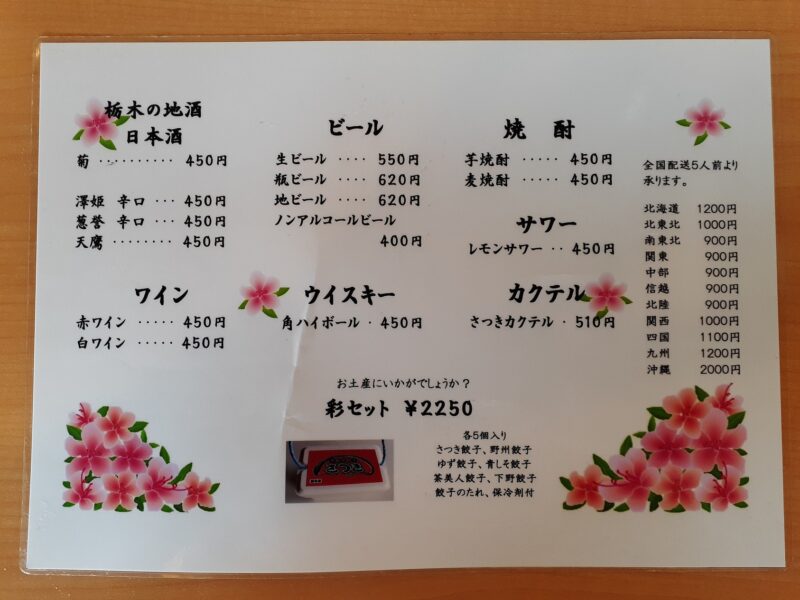 栃木の地酒
日本酒
菊 ·········· 450円
澤姫 辛口 ··· 450円
蔥誉 辛口 ··· 450円
天鷹 ········ 450円
ワイン
赤ワイン ····· 450円
白ワイン ····· 450円
ビール
生ビール ···· 550円
瓶ビール ···· 620円
地ビール ···· 620円
ノンアルコールビール
400円
ウイスキー
角ハイボール · 450円
焼 酎
芋焼酎 ····· 450円
麦焼酎 ····· 450円
サワー
レモンサワー ·· 450円
カクテル
さつきカクテル · 510円
全国配送5人前より
承ります。
北海道 1200円
北東北 1000円
南東北 900円
関東 900円
中部 900円
信越 900円
北陸 900円
関西 1000円
四国 1100円
九州 1200円
沖縄 2000円
お土産にいかがでしょうか?
彩セット ¥2250
各5個入り
さつき餃子、野州餃子
ゆず餃子、青しそ餃子
茶美人餃子、下野餃子
餃子のたれ、保冷剤付
さつき